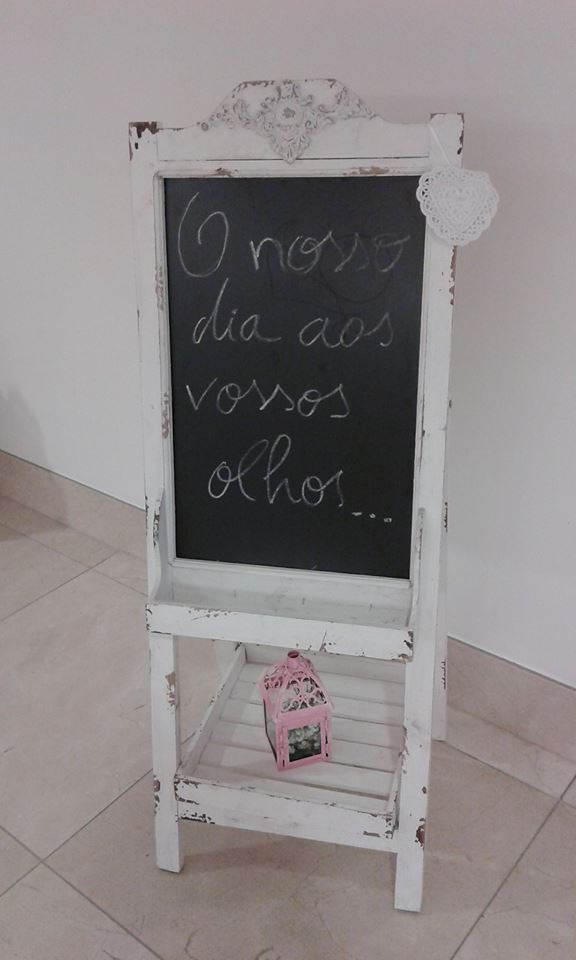 O nosso
dia aos
vossos
olhos...